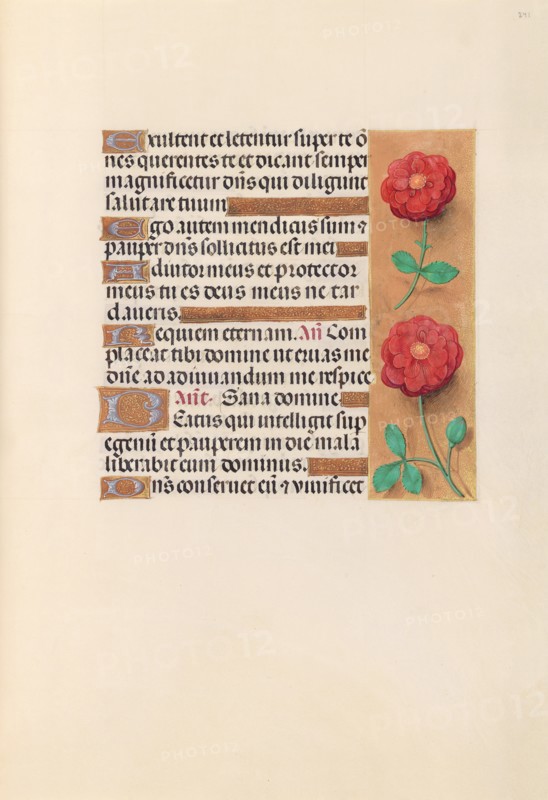 Exultent et letentur super te õ
nes querentes te et dicant semper
magnificetur dñs qui diligunt
salutare tuum
Ego autem mendicus sum ⁊
pauper dñs sollicitus est mei
Adiutor meus et protector
meus tu es deus meus ne tar
daveris.
Requiem eternam. Añ Com
placeat tibi domine ut eruas me
dñe ad adiuuandum me respice
Añt. Sana domine.
Beatus qui intelligit sup
egenũ et pauperem in die mala
liberabit eum dominus.
Dñs conseruet eũ ⁊ viuificet
PHOTO12